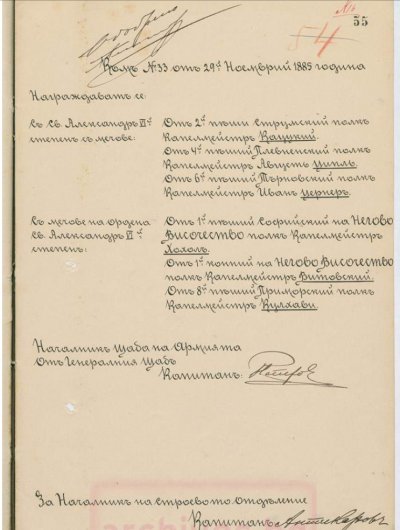 55
54
Къмъ №33 отъ 29й Ноемврий 1885 година
Награждаватъ се:
Съ Св. Александръ V й
степенъ съ мечове:
Отъ 2й пѣши Струмски полкъ
Капелмейстръ Кауцкий.
Отъ 4й пѣши Плевненский полкъ
Капелмейстръ Августъ Ципль.
Отъ 6й пѣши Търновский полкъ
Капелмейстръ Иванъ Цернеръ.
Съ мечове на ордена
Св. Александръ VI й
степень:
Отъ 1й пѣший Софийский на Негово
Височество полкъ Капелмейстръ
Хохолъ.
Отъ 1й конний на Негово Височество
полкъ Капелмейстръ Витовский.
Отъ 8й пѣший Приморский полкъ
Капелмейстръ Кулхави.
Началникъ Щаба на Армията
Отъ Генералния Щабъ
Капитанъ:
За Началникъ на строевото отдѣление
Капитанъ